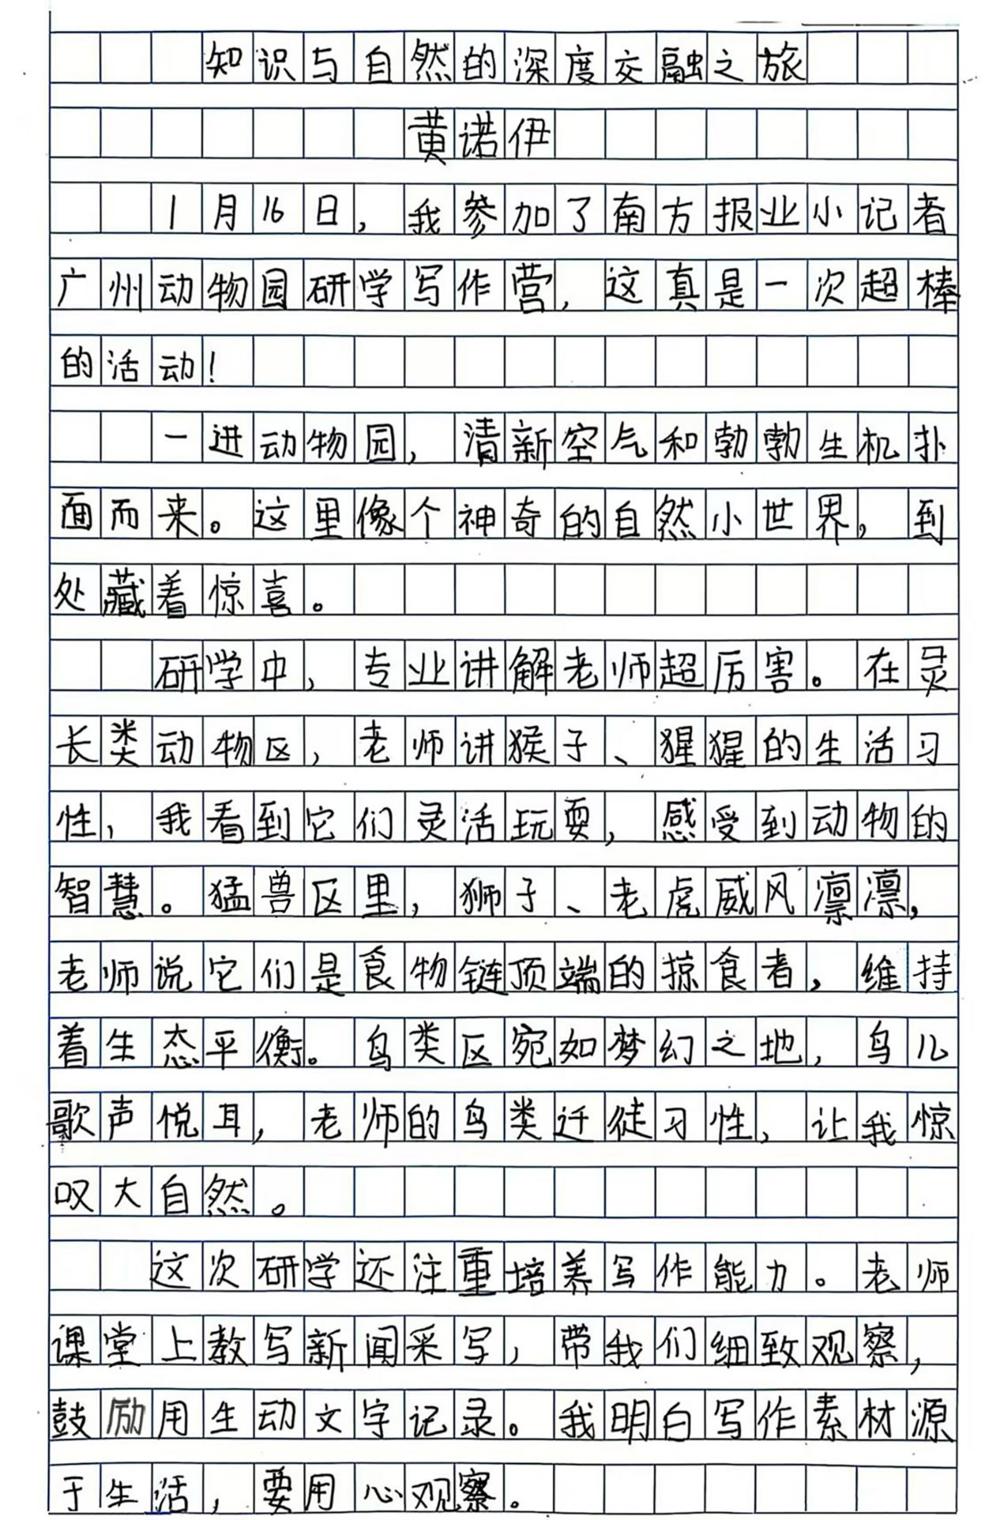 知识与自然的深度交融之旅
黄诺伊
1月16日，我参加了南方报业小记者
广州动物园研学写作营，这真是一次超棒
的活动！
一进动物园，清新空气和勃勃生机扑
面而来。这里像个神奇的自然小世界，到
处藏着惊喜。
研学中，专业讲解老师超厉害。在灵
长类动物区，老师讲猴子、猩猩的生活习
性，我看到它们灵活玩耍，感受到动物的
智慧。猛兽区里，狮子、老虎威风凛凛，
老师说它们是食物链顶端的掠食者，维持
着生态平衡。鸟类区宛如梦幻之地，鸟儿
歌声悦耳，老师的鸟类迁徒习性，让我惊
叹大自然。
这次研学还注重培养写作能力。老师
课堂上教写新闻采写，带我们细致观察，
鼓励用生动文字记录。我明白写作素材源
于生活，要用心观察。